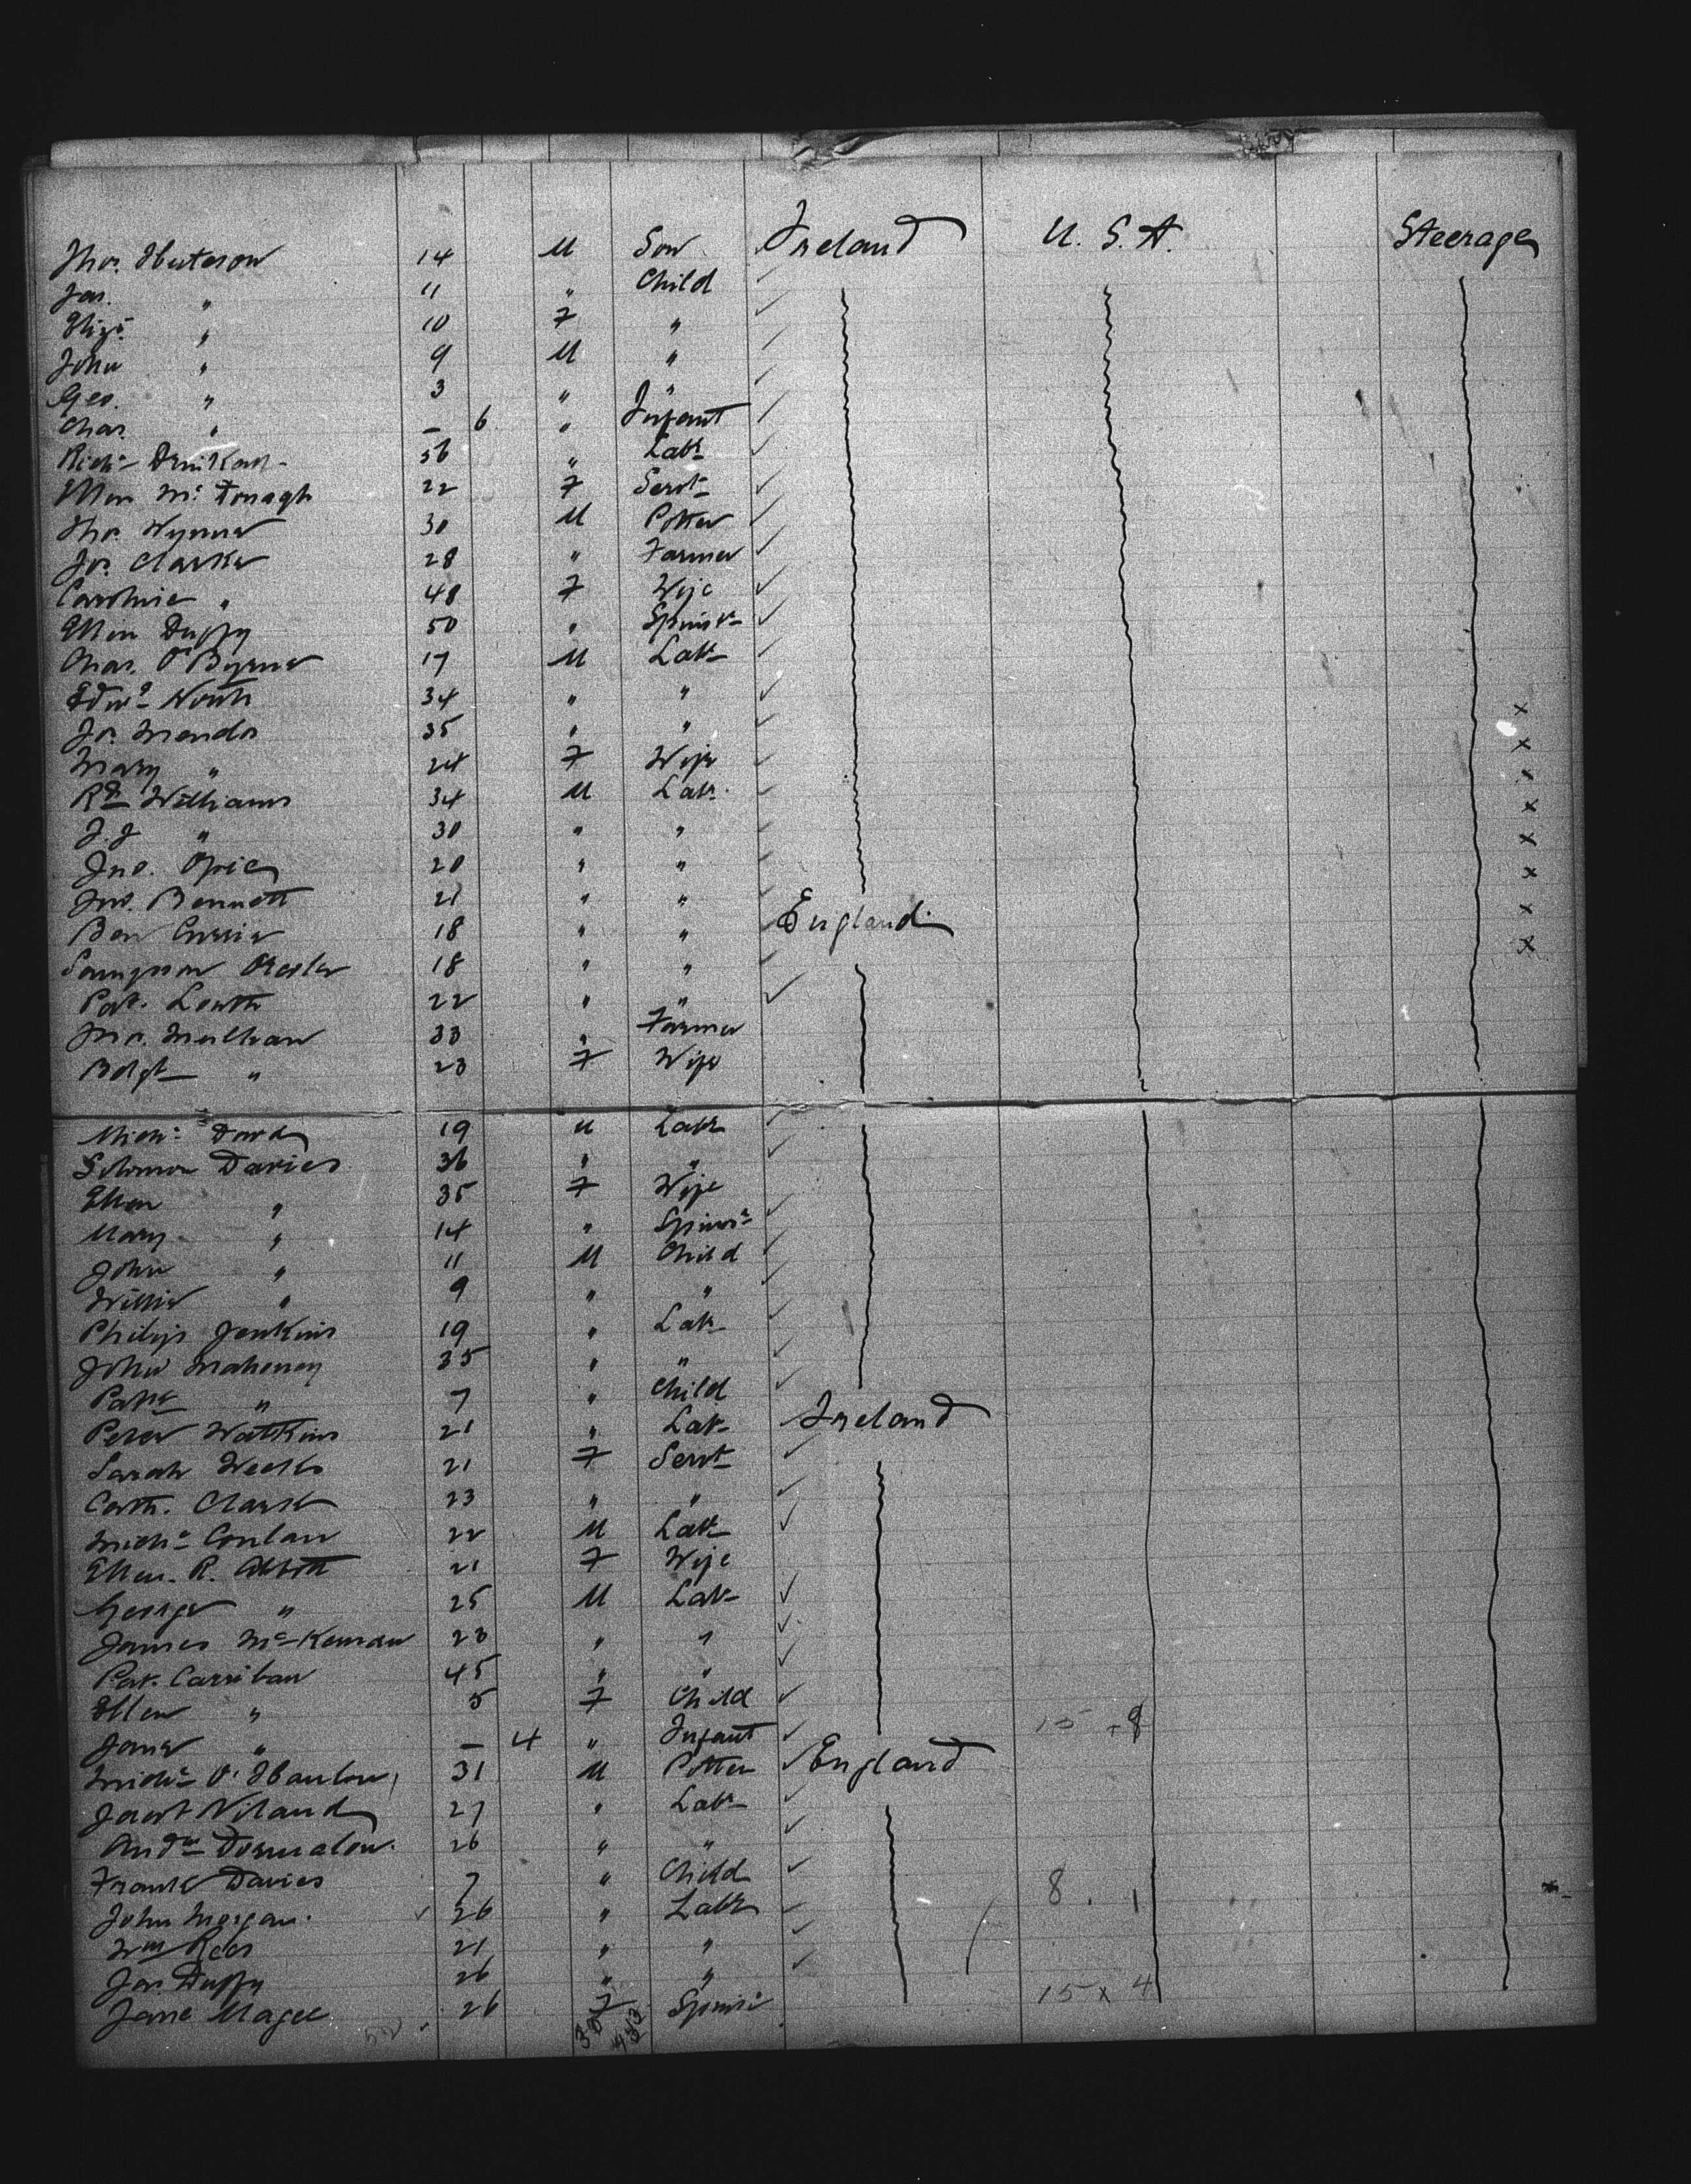 Thos. Huteson 14 M Son Ireland U. S. A. Steerage
Jas. " 11 " Child
Eliza " 10 F "
John " 9 M "
Geo. " 3 " "
Chas. " – 6 " Infant
Richd 36 " Labr
Ellen McDonagh 22 F Servt
Thos. Wynne 30 M Potter
Jos. Clarke 28 " Farmer
Caroline " 48 F Wife
Ellen Duffy 50 " Spinsr
Chas. O'Byrne 17 M Labr
Edwd North 34 " "
Jos. 35 " "
Mary " 24 F Wife
Rd Williams 34 M Labr
J. J " 30 " "
Jno. Opie 20 " "
Jno. Bennett 21 " "
Ben Currie 18 " " England
Sampson 18 " "
Pat. Louth 22 " "
Jno. Mulhan 33 " Farmer
Bdgt " 23 F Wife
Michl 19 M Labr
Solomon Davies 36 " "
Ellen " 35 F Wife
Mary " 14 " Spinsr
John " 11 M Child
Willie " 9 " "
Philip Jenkins 19 " Labr
John Maheney 35 " "
Patk " 7 " Child
Peter Watkins 21 " Labr Ireland
Sarah Weeks 21 F Servt
Cath. Clark 23 " "
Michl Conlan 22 M Labr
Ellen. R. Abbott 21 F Wife
George " 25 M Labr
James McKernan 23 " "
Pat. Carriban 45 " "
Ellen " 5 F Child
Jane " – 4 " Infant 15 + 8
Michl O'Hanlon 31 M Potter England
Niland 27 " Labr
Andw 26 " "
Frank Davies 7 " Child
John Morgan. 26 " Labr 8 . 1
Wm Rees 21 " "
Jas. Duffy 26 " "
Jane Magee 26 F Spinsr 15 x 4